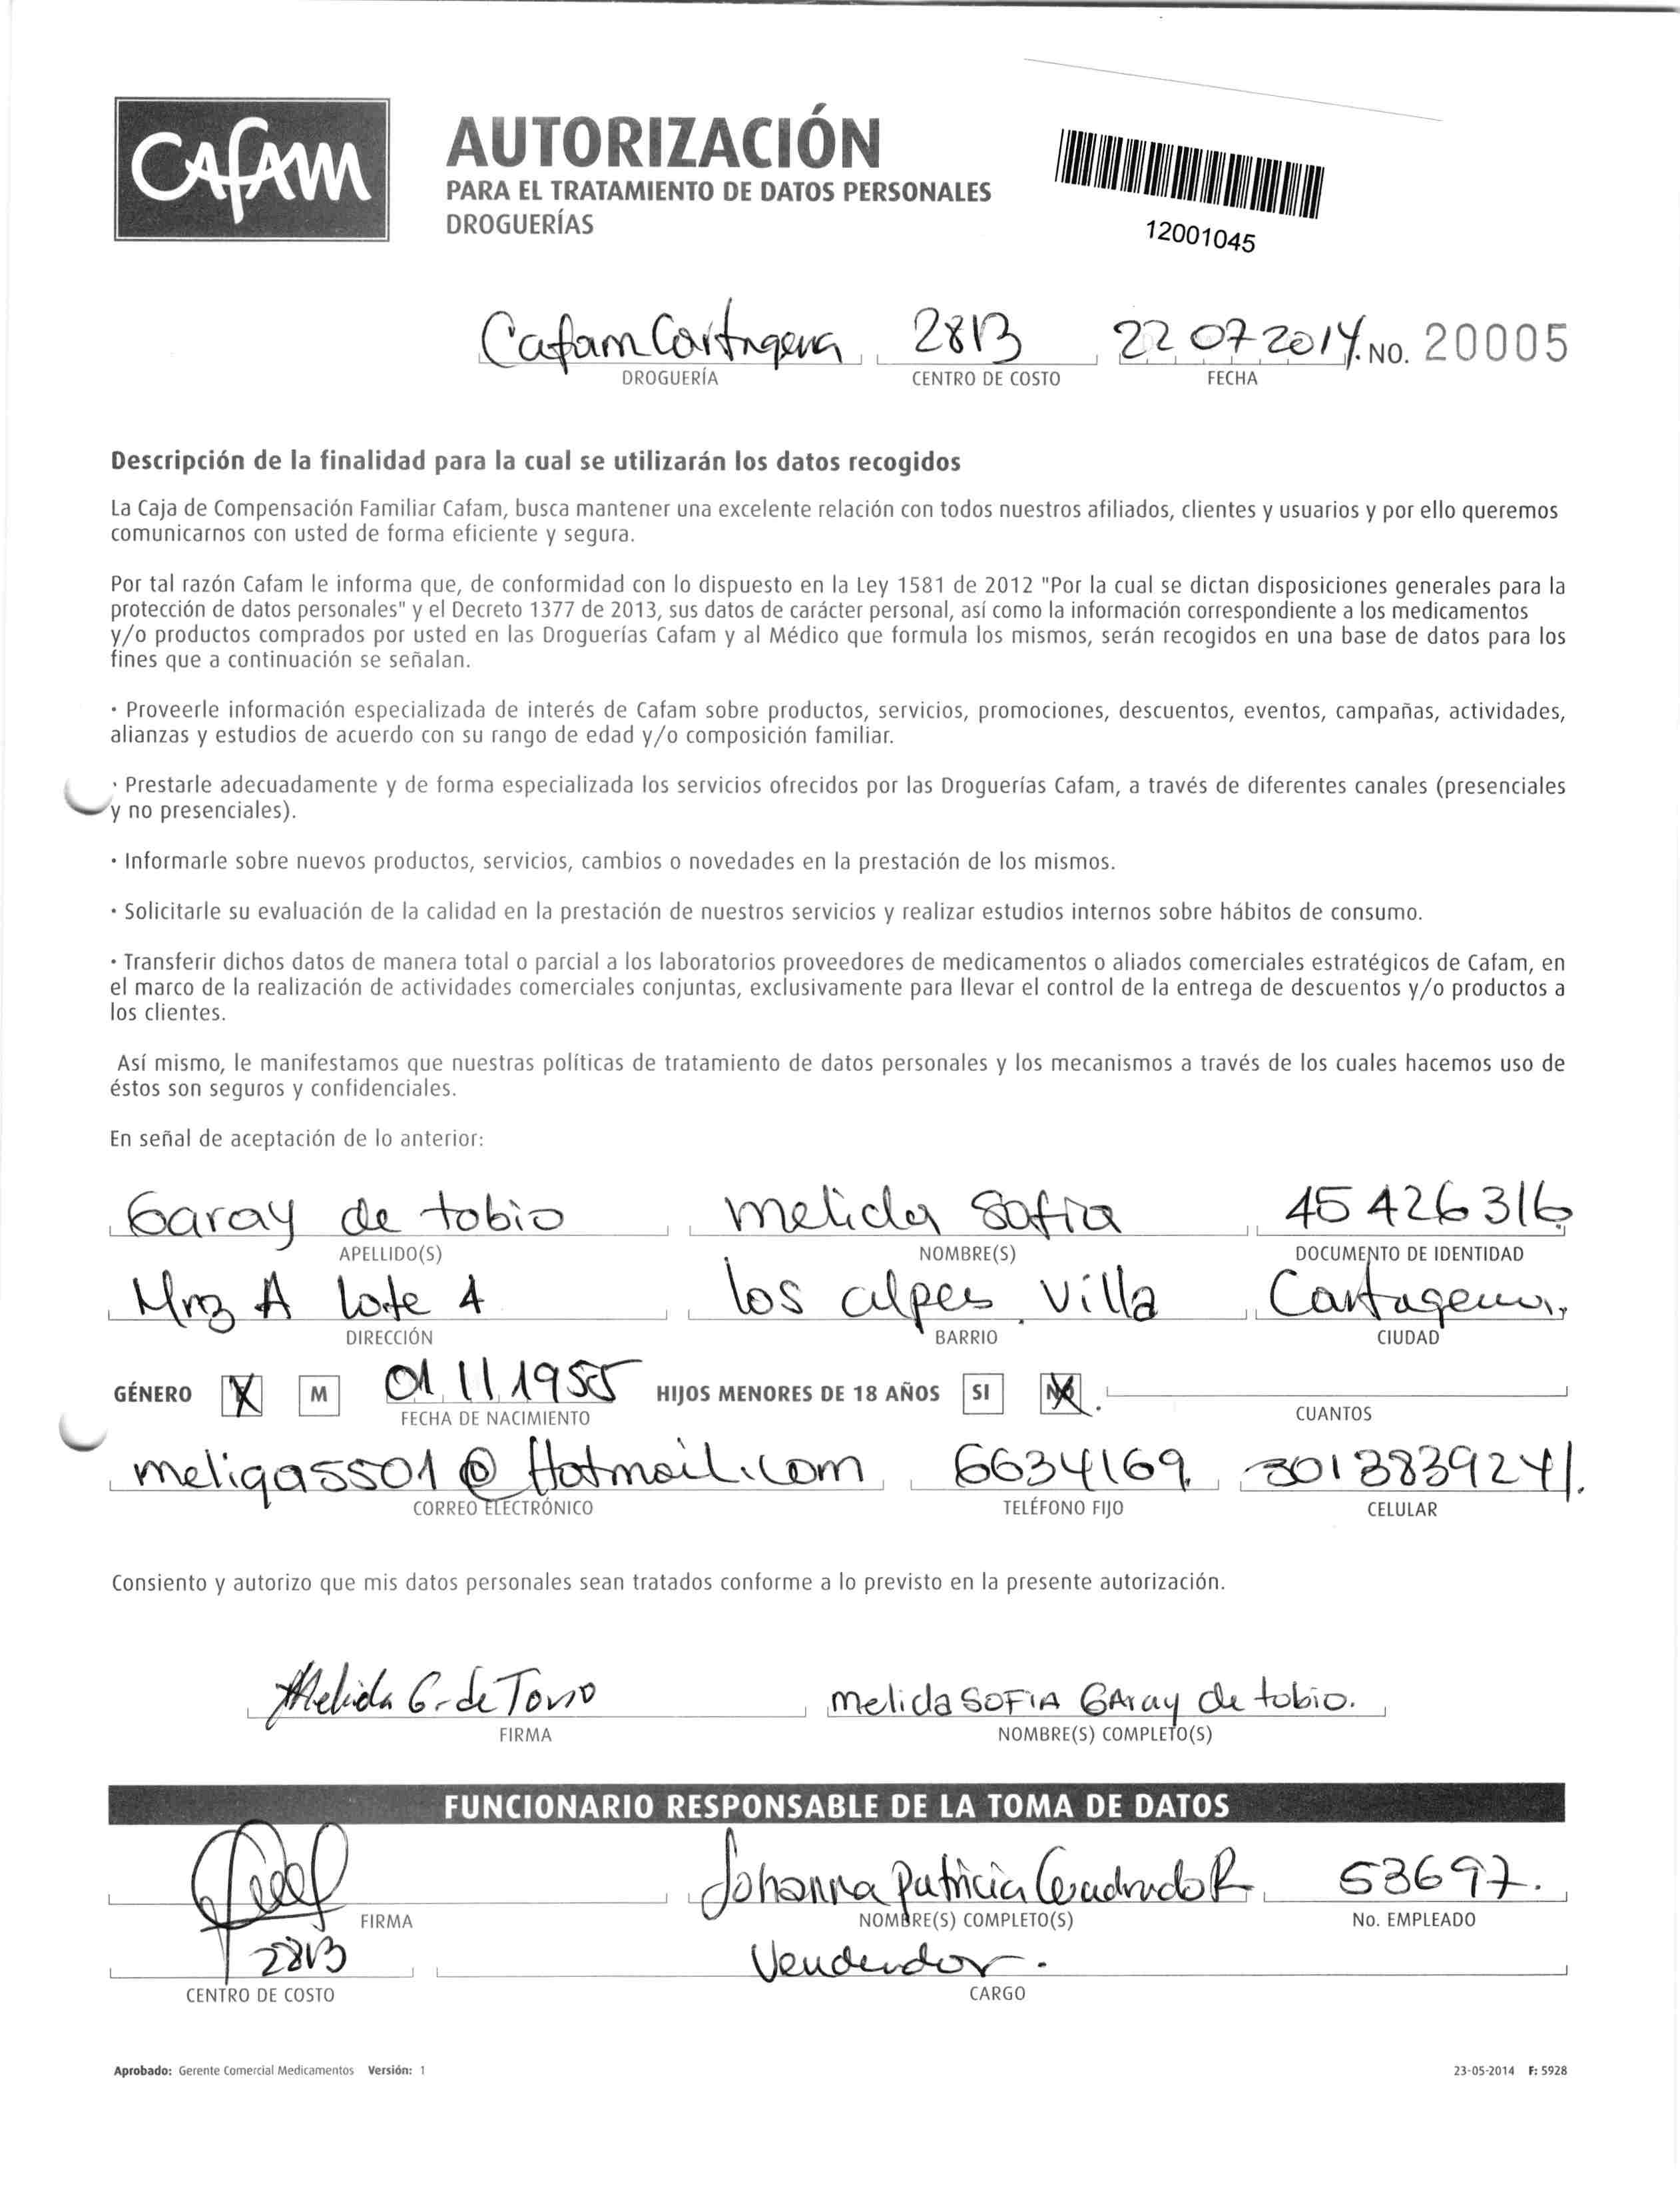 Cafam
AUTORIZACIÓN
PARA EL TRATAMIENTO DE DATOS PERSONALES
DROGUERÍAS
12001045
Cafam Cartagena 2813 22 07 2014. NO. 20005
DROGUERÍA CENTRO DE COSTO FECHA
Descripción de la finalidad para la cual se utilizarán los datos recogidos
La Caja de Compensación Familiar Cafam, busca mantener una excelente relación con todos nuestros afiliados, clientes y usuarios y por ello queremos
comunicarnos con usted de forma eficiente y segura.
Por tal razón Cafam le informa que, de conformidad con lo dispuesto en la Ley 1581 de 2012 "Por la cual se dictan disposiciones generales para la
protección de datos personales" y el Decreto 1377 de 2013, sus datos de carácter personal, así como la información correspondiente a los medicamentos
y/o productos comprados por usted en las Droguerías Cafam y al Médico que formula los mismos, serán recogidos en una base de datos para los
fines que a continuación se señalan.
· Proveerle información especializada de interés de Cafam sobre productos, servicios, promociones, descuentos, eventos, campañas, actividades,
alianzas y estudios de acuerdo con su rango de edad y/o composición familiar.
· Prestarle adecuadamente y de forma especializada los servicios ofrecidos por las Droguerías Cafam, a través de diferentes canales (presenciales
y no presenciales).
· Informarle sobre nuevos productos, servicios, cambios o novedades en la prestación de los mismos.
· Solicitarle su evaluación de la calidad en la prestación de nuestros servicios y realizar estudios internos sobre hábitos de consumo.
· Transferir dichos datos de manera total o parcial a los laboratorios proveedores de medicamentos o aliados comerciales estratégicos de Cafam, en
el marco de la realización de actividades comerciales conjuntas, exclusivamente para llevar el control de la entrega de descuentos y/o productos a
los clientes.
Así mismo, le manifestamos que nuestras políticas de tratamiento de datos personales y los mecanismos a través de los cuales hacemos uso de
éstos son seguros y confidenciales.
En señal de aceptación de lo anterior:
Garay de tobio melida Sofia 45 426316
APELLIDO(S) NOMBRE(S) DOCUMENTO DE IDENTIDAD
Mnz A lote 4 los alpes. Villa Cartagena.
DIRECCIÓN BARRIO CIUDAD
GÉNERO X M 01 11 1955 HIJOS MENORES DE 18 AÑOS SI NO
FECHA DE NACIMIENTO CUANTOS
meliga5501@Hotmail.com 6634169. 3013839241.
CORREO ELECTRÓNICO TELÉFONO FIJO CELULAR
Consiento y autorizo que mis datos personales sean tratados conforme a lo previsto en la presente autorización.
Melida G. de Tobio melida SOFIA GAray de tobio.
FIRMA NOMBRE(S) COMPLETO(S)
FUNCIONARIO RESPONSABLE DE LA TOMA DE DATOS
Johanna Patricia Cuadrado R 53697.
FIRMA NOMBRE(S) COMPLETO(S) No. EMPLEADO
2813 Vendedor.
CENTRO DE COSTO CARGO
Aprobado: Gerente Comercial Medicamentos Versión: 1 23-05-2014 F: 5928